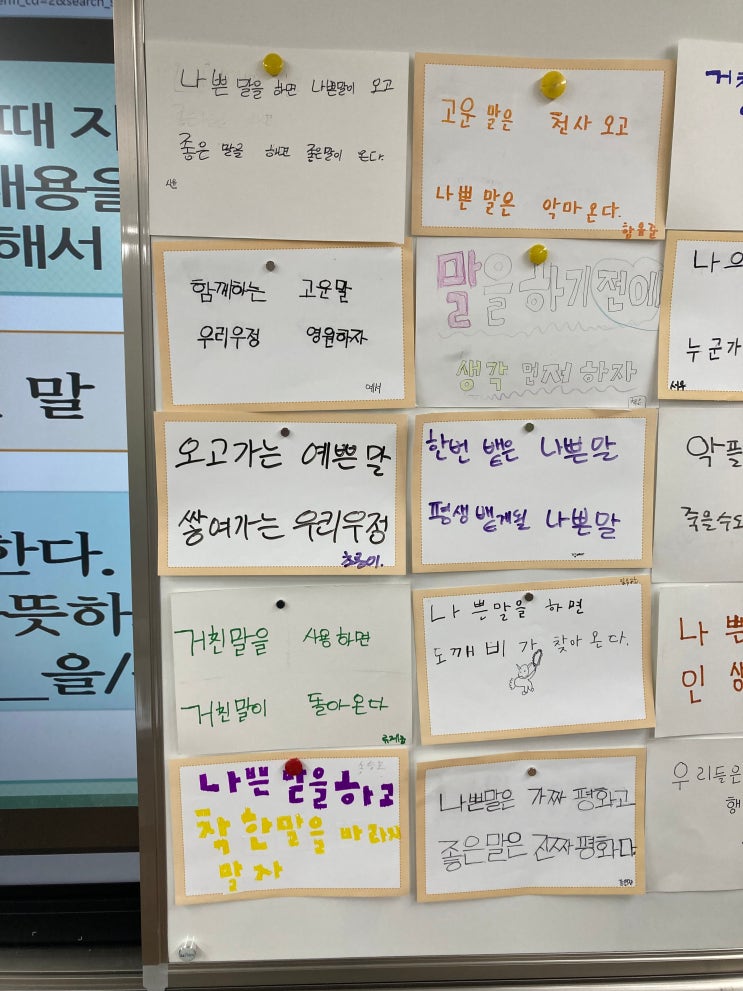 때 지
내용을
해서
말
한다.
뜻하
을/
나쁜 말을 하면 나쁜말이 오고
좋은 말을 해면 좋은말이 온다.
시윤
고운 말은 천사 오고
나쁜 말은 악마 온다.
함께하는 고운말
우리우정 영원하자
예서
말을 하기 전에
생각 먼저 하자
나의
누군가
서우
오고가는 예쁜 말
쌓여가는 우리우정
초롱이.
한번 뱉은 나쁜말
평생 뱉게될 나쁜말
악플
죽을수도
거친말을 사용하면
거친말이 돌아온다
나쁜말을 하면
도깨비가 찾아온다.
나쁜
인생
나쁜 말을하고
착한말을 바라지
말자
나쁜말은 가짜 평화고
좋은말은 진짜평화다
우리들은
행